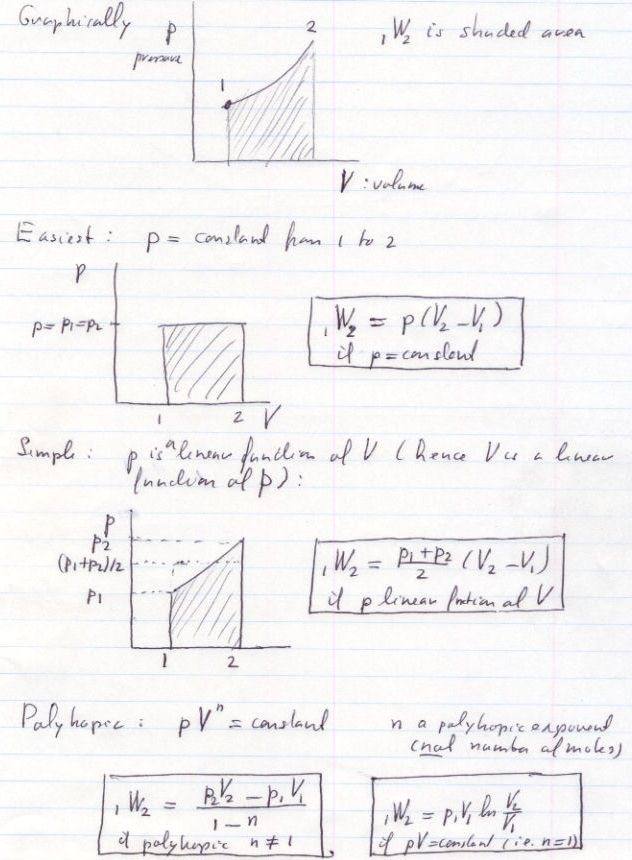 Graphically
p
pressure
1
2
₁W₂ is shaded area
V : volume
Easiest : p = constant from 1 to 2
p
p = p₁ = p₂
1 2 V
₁W₂ = p(V₂ - V₁)
if p = constant
Simple : p is a linear function of V (hence V is a linear
function of p) :
p
p2
(p₁+p₂)/2
p1
1 2
₁W₂ = (p₁+p₂)/2 (V₂ - V₁)
if p linear function of V
Polytropic : pVⁿ = constant
n a polytropic exponent
(not number of moles)
₁W₂ = (p₂V₂ - p₁V₁)/(1 - n)
if polytropic n ≠ 1
₁W₂ = p₁V₁ ln V₂/V₁
if pV = constant (i.e. n=1)